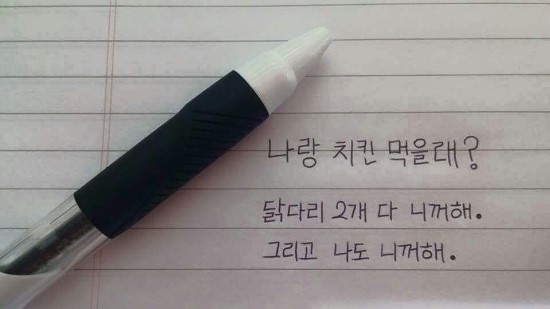 나랑 치킨 먹을래?
닭다리 2개 다 니꺼해.
그리고 나도 니꺼해.